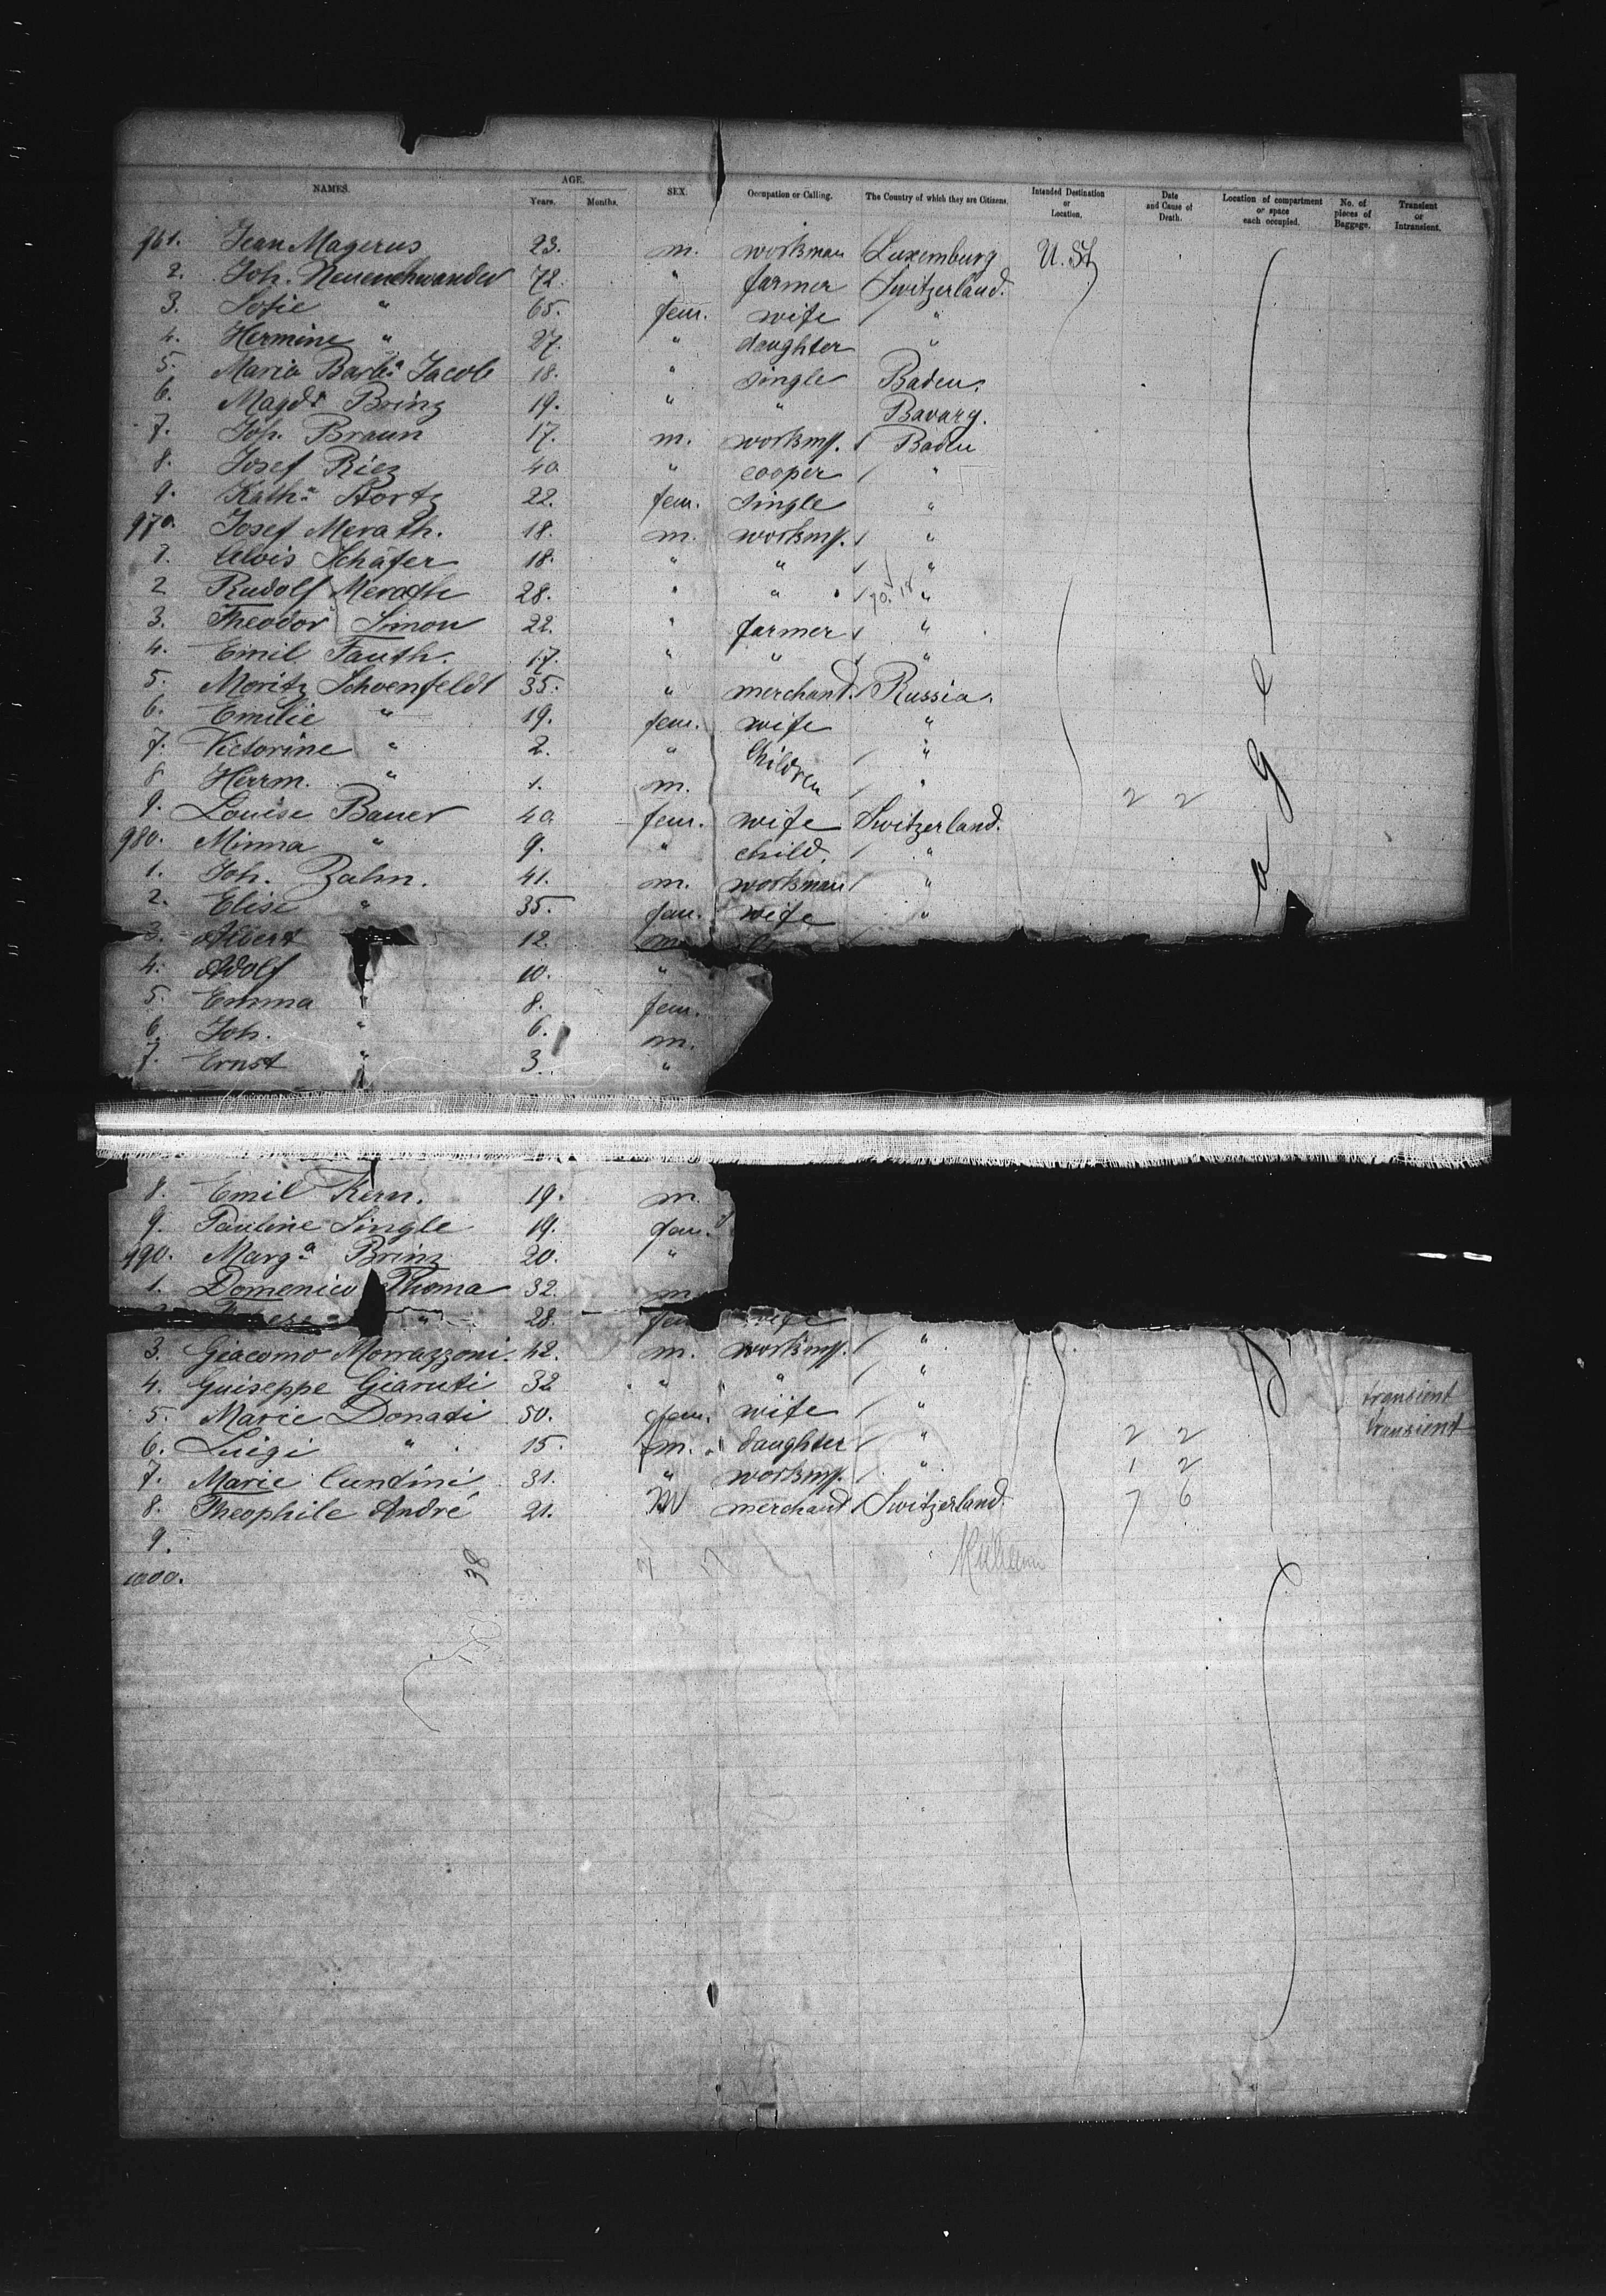 NAMES. AGE. Years. Months. SEX. Occupation or Calling. The Country of which they are Citizens. Intended Destination or Location. Date and Cause of Death. Location of compartment or space each occupied. No. of pieces of Baggage. Transient or Intransient.
961. Jean Magerus 23. m. workman Luxemburg U. St
2. Joh. Neuenchwander 72. " farmer Switzerland.
3. Sofie " 65. fem. wife "
4. Hermine " 27. " daughter "
5. Maria Barba Jacob 18. " single Baden.
6. Magda Brinz 19. " " Bavary.
7. Joh. Braun 17. m. workm. Baden
8. Josef Riez 40 " cooper "
9. Katha Stortz 22. fem. single "
970. Josef Merath. 18. m. workm. "
1. Alois Schäfer 18. " " "
2 Rudolf Merath 28. " " "
3. Theodor Simon 22. " farmer "
4. Emil Fauth. 17. " " "
5. Moritz Schoenfeldt 35. " merchand. Russia.
6. Emilie " 19. fem. wife "
7. Victorine " 2. " Children "
8 Herrm. " 1. m. "
2 2
9. Louise Bauer 40 fem. wife Switzerland.
980. Minna " 9. " child. "
1. Joh. Zahn. 41. m. workman "
2. Elise " 35. fem. wife "
3. Albert 12. m.
4. Adolf 10. "
5. Emma 8. fem.
6. Joh. " 6. m.
7. Ernst " 3. "
8. Emil Kern. 19. m.
9. Pauline Single 19. fem.
990. Marga Brinz 20. "
1. Domenico Thoma 32. m.
" 28. fem wife
3. Giacomo Morrazzoni. 42. m. workm. "
4. Guiseppe Giaruti 32 " " " transient
5. Marie Donati 50. fem. wife " transient
6. Luigi " 15. m. daughter " 2 2
7. Marie Cundini 31. " workm. " 1 2
8. Theophile André 21. M merchand Switzerland. 7 6
9.
1000. 38